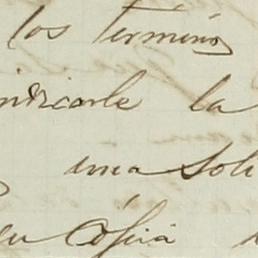 los términos
indicarle la
una soli
en copia